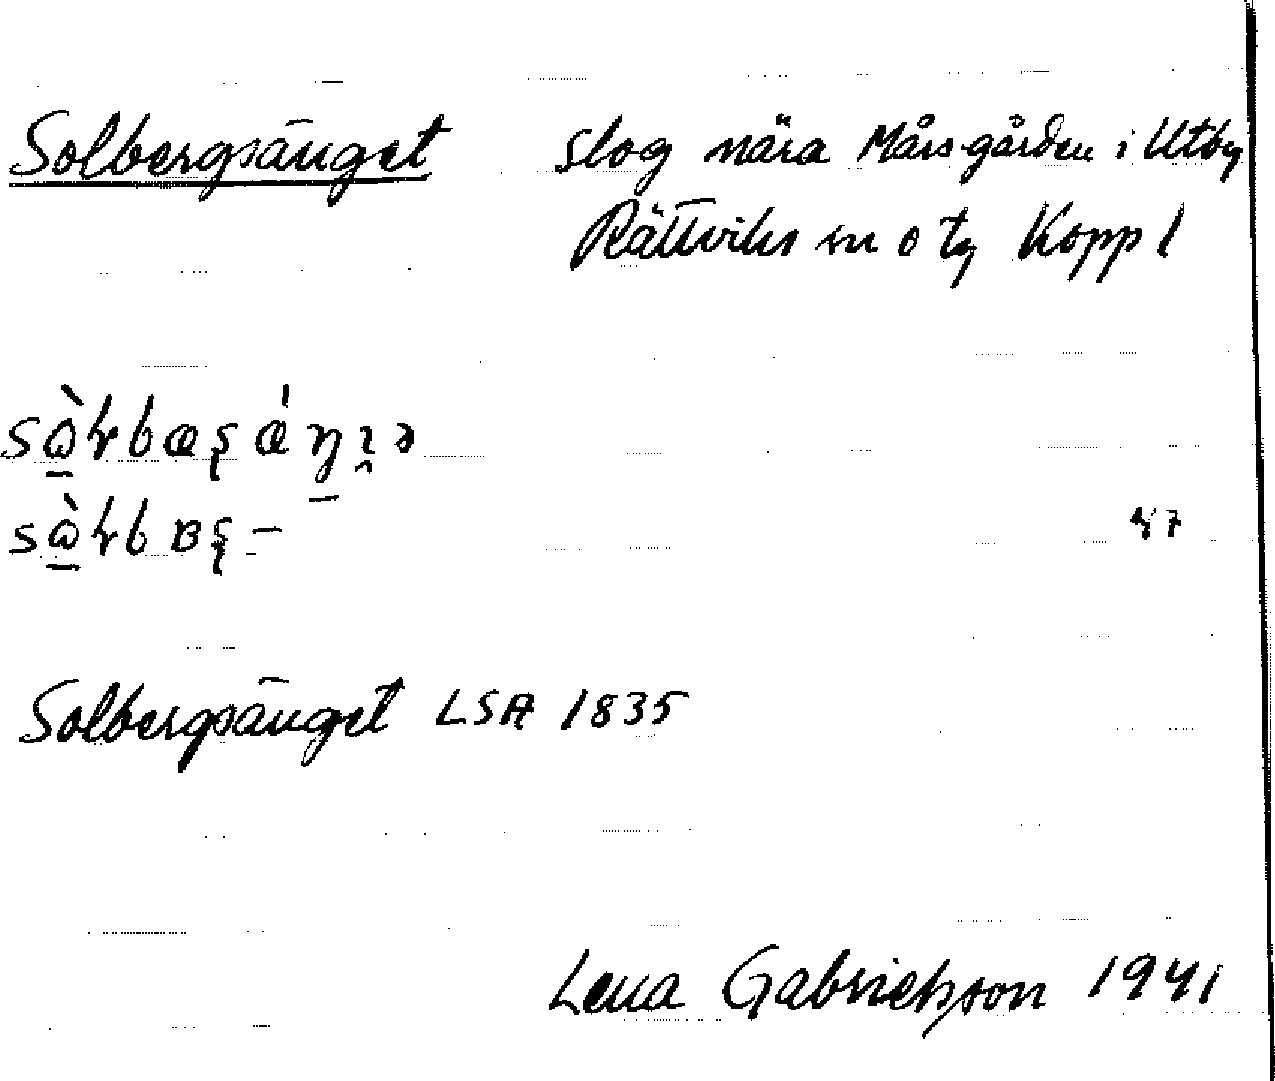 Solbergsänget slog nära Mårsgården i Utby
Rättviks sn o tg Kopp l
47
Solbergsänget LSA 1835
Lena Gabrielsson 1941